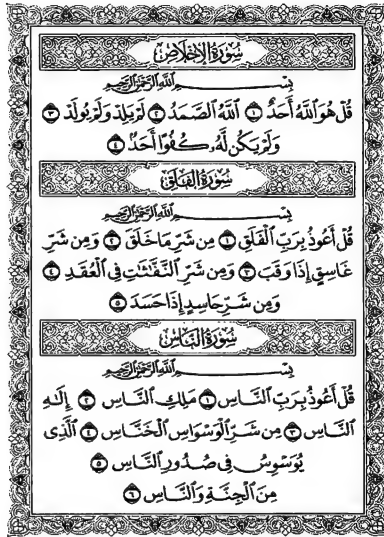 سُورَةُ الإِخْلَاصِ
بِسْمِ ٱللَّهِ ٱلرَّحْمَٰنِ ٱلرَّحِيمِ
قُلْ هُوَ ٱللَّهُ أَحَدٌ ١ ٱللَّهُ ٱلصَّمَدُ ٢ لَمْ يَلِدْ وَلَمْ يُولَدْ ٣
وَلَمْ يَكُن لَّهُۥ كُفُوًا أَحَدٌ ٤
سُورَةُ الْفَلَقِ
بِسْمِ ٱللَّهِ ٱلرَّحْمَٰنِ ٱلرَّحِيمِ
قُلْ أَعُوذُ بِرَبِّ ٱلْفَلَقِ ١ مِن شَرِّ مَا خَلَقَ ٢ وَمِن شَرِّ
غَاسِقٍ إِذَا وَقَبَ ٣ وَمِن شَرِّ ٱلنَّفَّٰثَٰتِ فِى ٱلْعُقَدِ ٤
وَمِن شَرِّ حَاسِدٍ إِذَا حَسَدَ ٥
سُورَةُ النَّاسِ
بِسْمِ ٱللَّهِ ٱلرَّحْمَٰنِ ٱلرَّحِيمِ
قُلْ أَعُوذُ بِرَبِّ ٱلنَّاسِ ١ مَلِكِ ٱلنَّاسِ ٢ إِلَٰهِ
ٱلنَّاسِ ٣ مِن شَرِّ ٱلْوَسْوَاسِ ٱلْخَنَّاسِ ٤ ٱلَّذِى
يُوَسْوِسُ فِى صُدُورِ ٱلنَّاسِ ٥
مِنَ ٱلْجِنَّةِ وَٱلنَّاسِ ٦